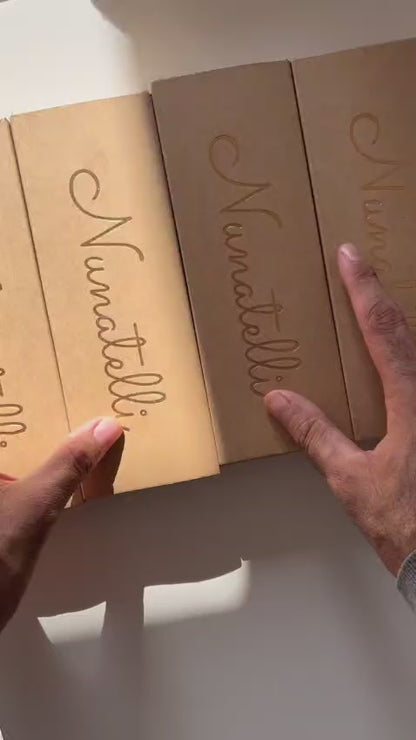 Nunatelli
Nunatelli
Nuna